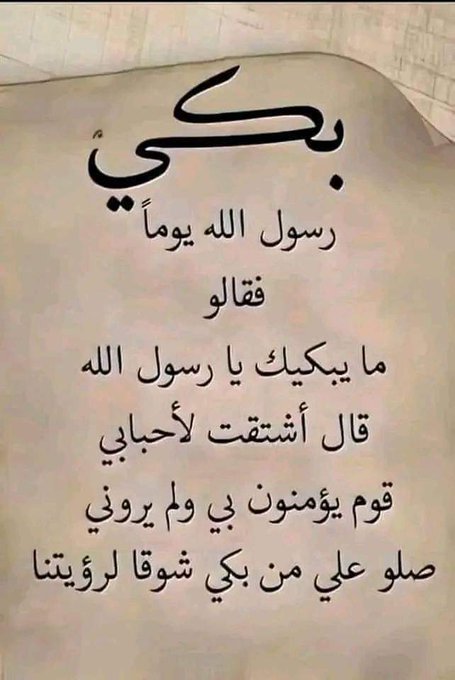 بكي
رسول الله يوماً
فقالو
ما يبكيك يا رسول الله
قال أشتقت لأحبابي
قوم يؤمنون بي ولم يروني
صلو علي من بكي شوقا لرؤيتنا